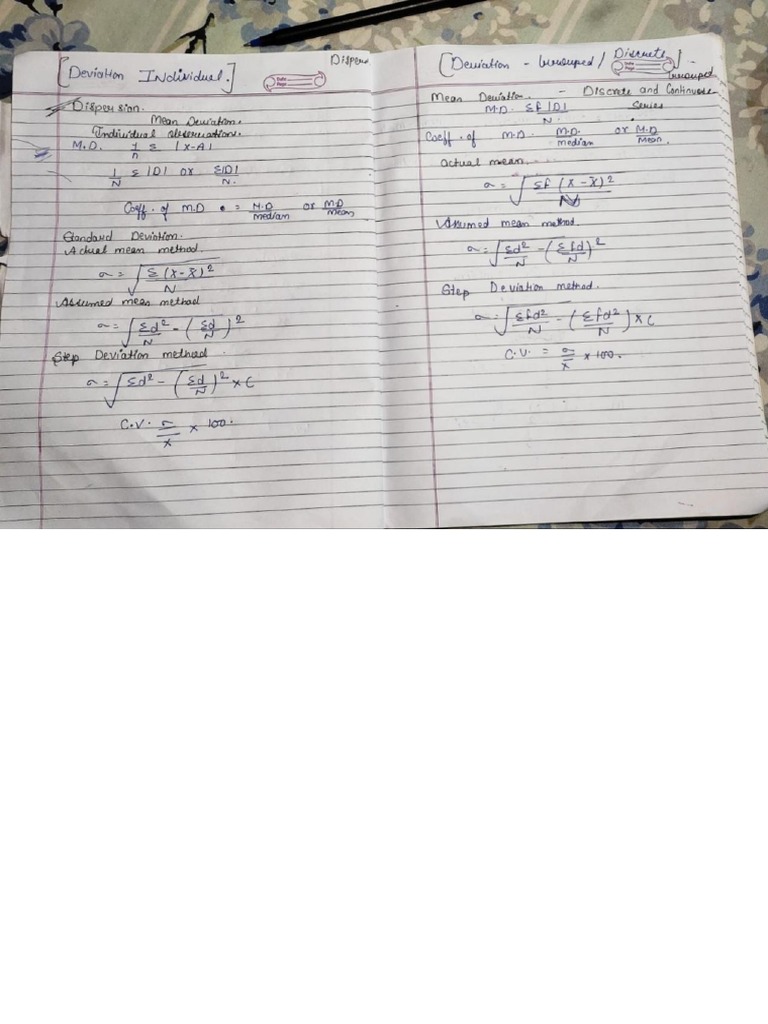 [Deviation INdividual.]
Dispersion.
Mean Deviation.
Individual observation.
M.D. 1/n Σ |x-A|
1/N Σ |D| or Σ|D|/N.
Coeff. of M.D = M.D/median or M.D/Mean
Standard Deviation.
Actual mean method.
σ = √Σ(x-x̄)²/N
Assumed mean method
σ = √Σd²/N - (Σd/N)²
Step Deviation method.
σ = √Σd² - (Σd/N)² × C
C.V. σ/x × 100.
Date
Page
[Deviation - / Discrete] -
Date
Page
Mean Deviation. - Discrete and Continuous
M.D. Σf|D|/N. Series
Coeff. of M.D. M.D./median or M.D/Mean.
actual mean.
σ = √Σf(x-x̄)²/N
Assumed mean method.
σ = √Σd²/N - (Σfd/N)²
Step Deviation method.
σ = √Σfd²/N - (Σfd²/N) × C
C.V. = σ/x × 100.